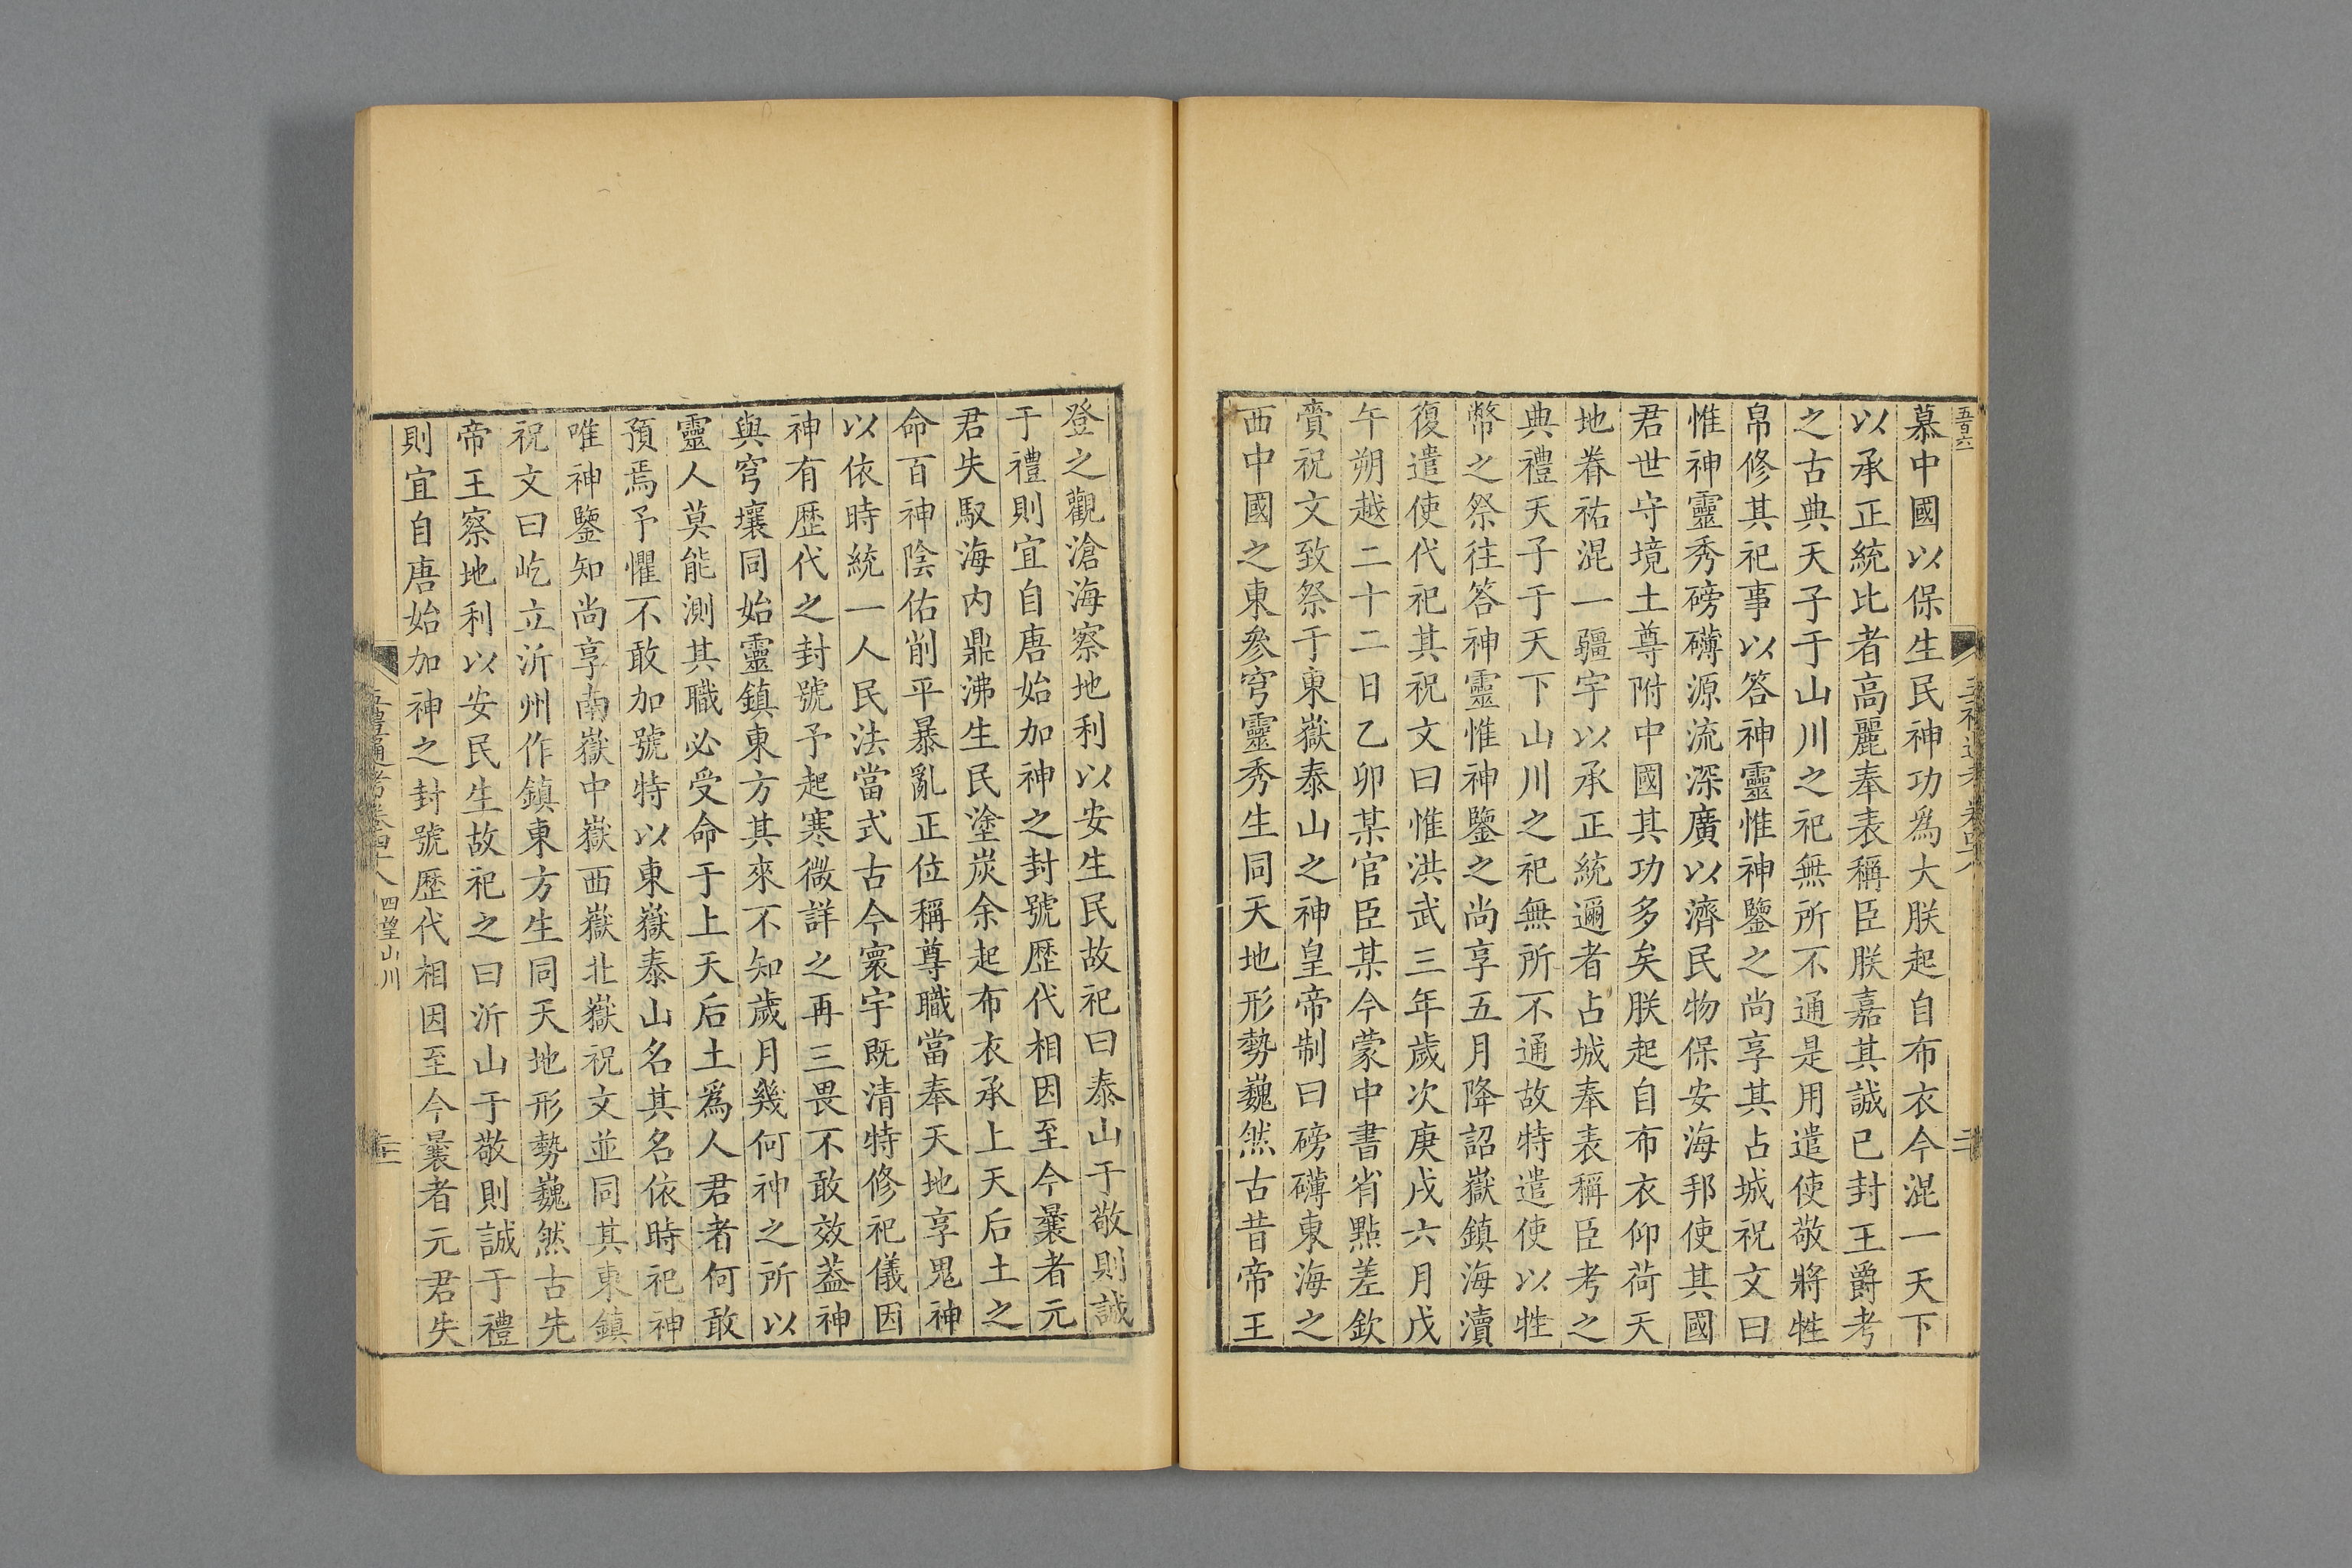 慕中國以保生民神功爲大朕起自布衣今混一天下
以承正統比者高麗奉表稱臣朕嘉其誠已封王爵考
之古典天子于山川之祀無所不通是用遣使敬將牲
帛修其祀事以答神靈惟神鑒之尚享其占城祝文曰
惟神靈秀磅礴源流深廣以濟民物保安海邦使其國
君世守境土尊附中國其功多矣朕起自布衣仰荷天
地眷祐混一疆宇以承正統邇者占城奉表稱臣考之
典禮天子于天下山川之祀無所不通故特遣使以牲
幣之祭往答神靈惟神鑒之尚享五月降詔嶽鎮海瀆
復遣使代祀其祝文曰惟洪武三年歲次庚戌六月戊
午朔越二十二日乙卯某官臣某今蒙中書省點差欽
賫祝文致祭于東嶽泰山之神皇帝制曰磅礴東海之
西中國之東參穹靈秀生同天地形勢巍然古昔帝王
登之觀滄海察地利以安生民故祀曰泰山于敬則誠
于禮則宜自唐始加神之封號歷代相因至今曩者元
君失馭海内鼎沸生民塗炭余起布衣承上天后土之
命百神陰佑削平暴亂正位稱尊職當奉天地享鬼神
以依時統一人民法當式古今寰宇既清特修祀儀因
神有歷代之封號予起寒微詳之再三畏不敢效葢神
與穹壤同始靈鎮東方其來不知歲月幾何神之所以
靈人莫能測其職必受命于上天后土爲人君者何敢
預焉予懼不敢加號特以東嶽泰山名其名依時祀神
唯神鑒知尚享南嶽中嶽西嶽北嶽祝文並同其東鎮
祝文曰屹立沂州作鎮東方生同天地形勢巍然古先
帝王察地利以安民生故祀之曰沂山于敬則誠于禮
則宜自唐始加神之封號歷代相因至今曩者元君失
五禮通考卷四十八 四望山川